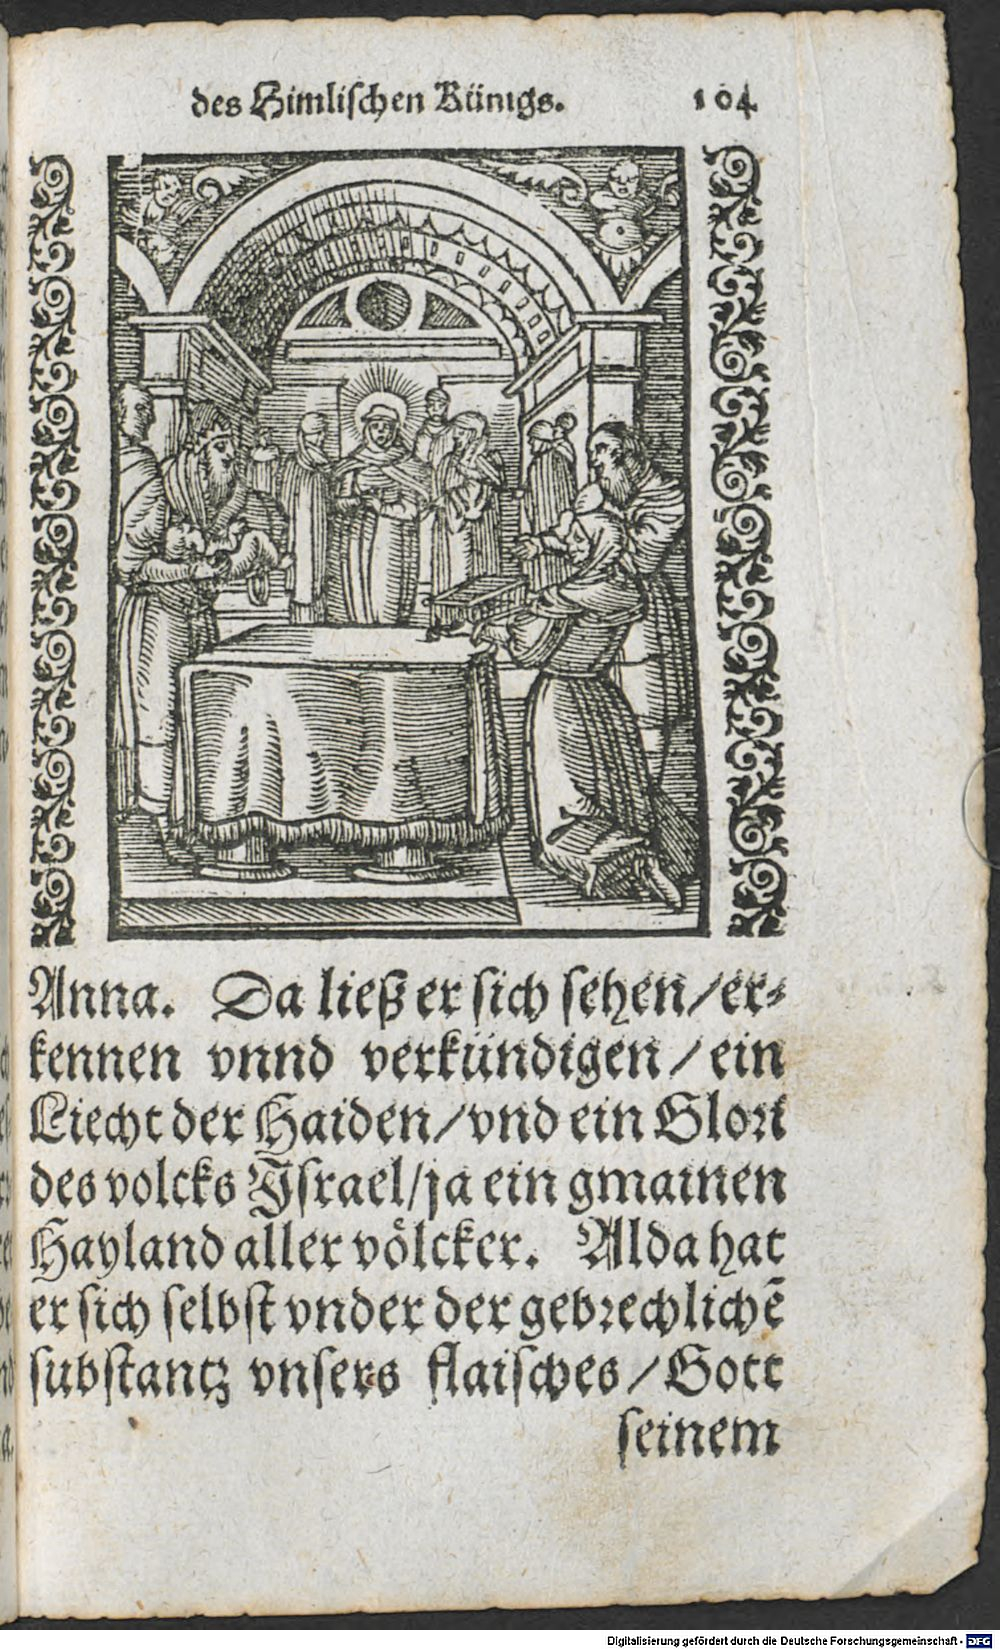 des Himlischen Künigs. 104
Anna. Da ließ er sich sehen/er⸗
kennen vnnd verkündigen/ein
Liecht der Haiden/vnd ein Glori
des volcks Jsrael/ja ein gmainen
Hayland aller völcker. Alda hat
er sich selbst vnder der gebrechlichẽ
substantz vnsers flaisches/Gott
seinem
Digitalisierung gefördert durch die Deutsche Forschungsgemeinschaft - DFG